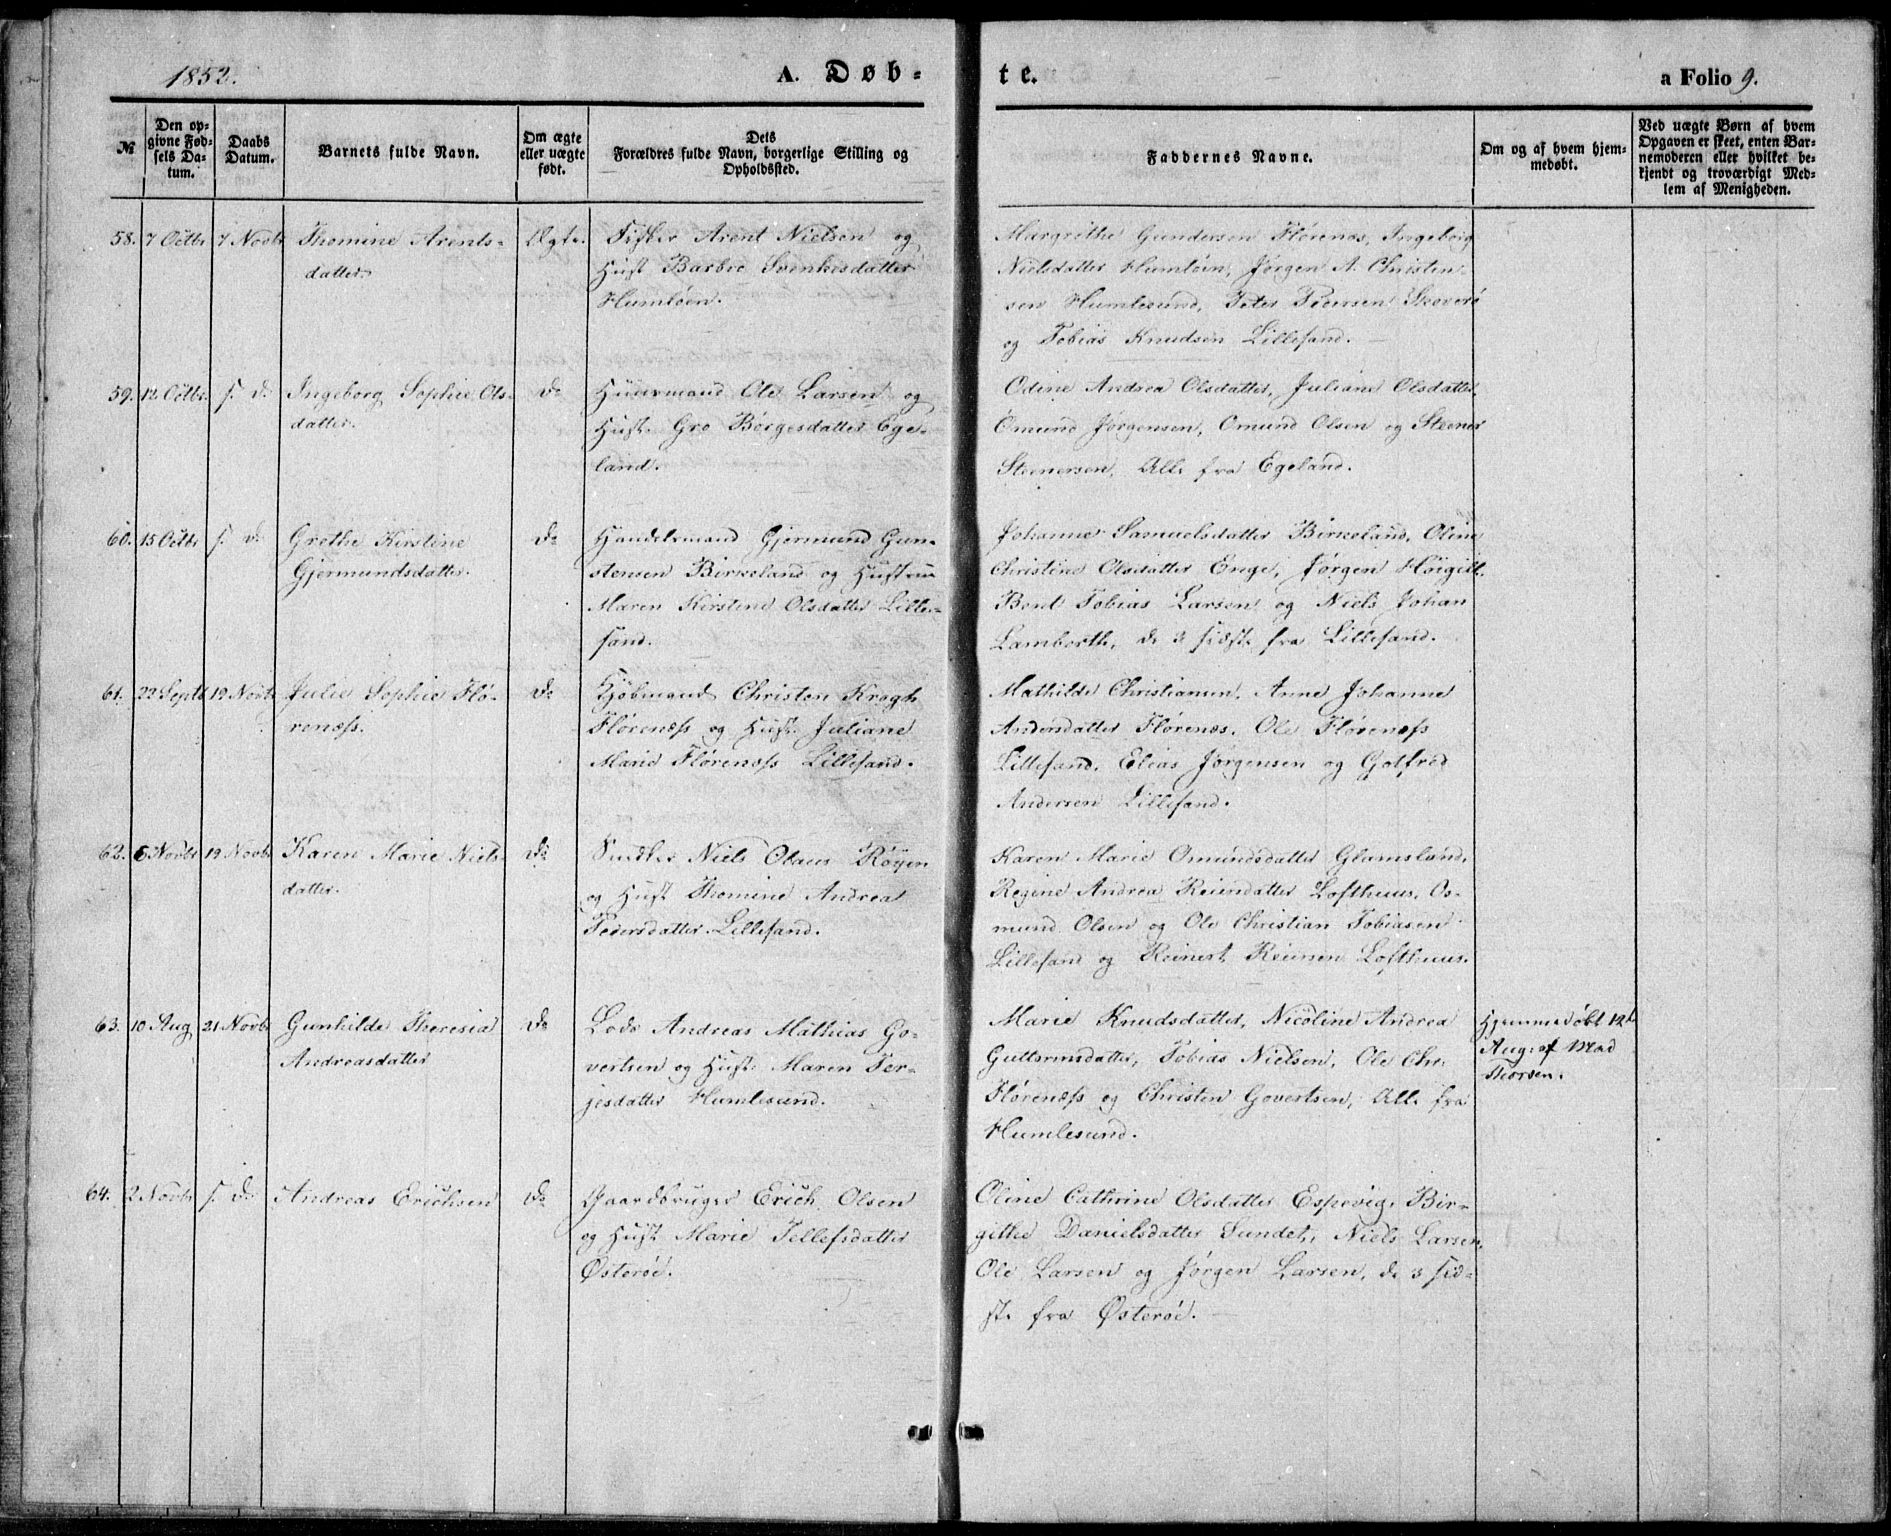 1852. A. Døb- te. a Folio 9.
№
Den op-
givne Fød-
sels Da-
tum.
Daabs
Datum.
Barnets fulde Navn.
Om ægte
eller uægte
født.
Dets
Forældres fulde Navn, borgerlige Stilling og
Opholdssted.
Faddernes Navne.
Om og af hvem hjem-
medøbt.
Ved uægte Børn af hvem
Opgaven er skeet, enten Bar-
nemoderen eller hvilket be-
kjendt og troværdigt Med-
lem af Menigheden.
58. 7 Octbr 7 Novbr Thomine Arents-
datter.
Ægte.
Fisker Arent Nielsen og
Hust Barbro Svenkesdatter
Humløen.
Margrethe Gundersen Flørenæs, Ingeborg
Nielsdatter Humløen, Jørgen A. Christen-
sen Humlesund, Peter Pedersen Skoverø
og Tobias Knudsen Lillesand.
59. 12 Octbr s. d. Ingeborg Sophie Ols-
datter.
do
Huusmand Ole Larsen og
Hust. Gro Børgesdatter Ege-
land.
Odine Andrea Olsdatter, Juliane Olsdatter,
Omund Jørgensen, Omund Olsen og Steener
Steenersen, Alle fra Egeland.
60. 15 Octbr s. d. Grethe Kirstine
Gjermundsdatter.
do
Handelsmand Gjermund Gun-
stensen Birkeland og Hustrue
Maren Kirstine Olsdatter Lille-
sand.
Johanne Samuelsdatter Birkeland, Oline
Christine Olsdatter Enge, Jørgen
Bent Tobias Larsen og Niels Johan
Lamberth, de 3 sidste fra Lillesand.
61. 22 Septb 19 Novbr Julie Sophie Flø-
renæss.
do
Kjøbmand Christen Krogh
Flørenæss og Hust. Juliane
Marie Flørenæss Lillesand.
Mathilde Christiansen, Anne Johanne
Andersdatter Flørenæs, Ole Flørenæss
Lillesand, Elias Jørgensen og Gotfred
Andersen Lillesand.
62. 6 Novbr 19 Novbr Karen Marie Niels-
datter.
do
Snedker Niels Olaus Røyen
og Hust Thomine Andrea
Pedersdatter Lillesand.
Karen Marie Omundsdatter Glamsland,
Regine Andrea Reiersdatter Lofthuus, Os-
mund Olsen og Ole Christian Tobiasen
Lillesand og Reinert Reiersen Lofthuus.
63. 10 Aug 21 Novbr Gunhilde Theresia
Andreasdatter
do
Lods Andreas Mathias Go-
vertsen og Hust. Maren Ter-
jesdatter Humlesund.
Marie Knudsdatter, Nicoline Andrea
Guttormsdatter, Tobias Nielsen, Ole Chr.
Flørenæss og Christen Govertsen, Alle fra
Humlesund.
Hjemmedøbt 12te
Aug: af Mad
Thorsen.
64. 2 Novbr s. d. Andreas Erichsen
do
Gaardbruger Erich Olsen
og Hust Marie Tellefsdatter
Østerøe.
Oline Cathrine Olsdatter Espevig, Bir-
githe Danielsdatter Sundet, Niels Larsen,
Ole Larsen og Jørgen Larsen, de 3 sid-
ste fra Østerøe.